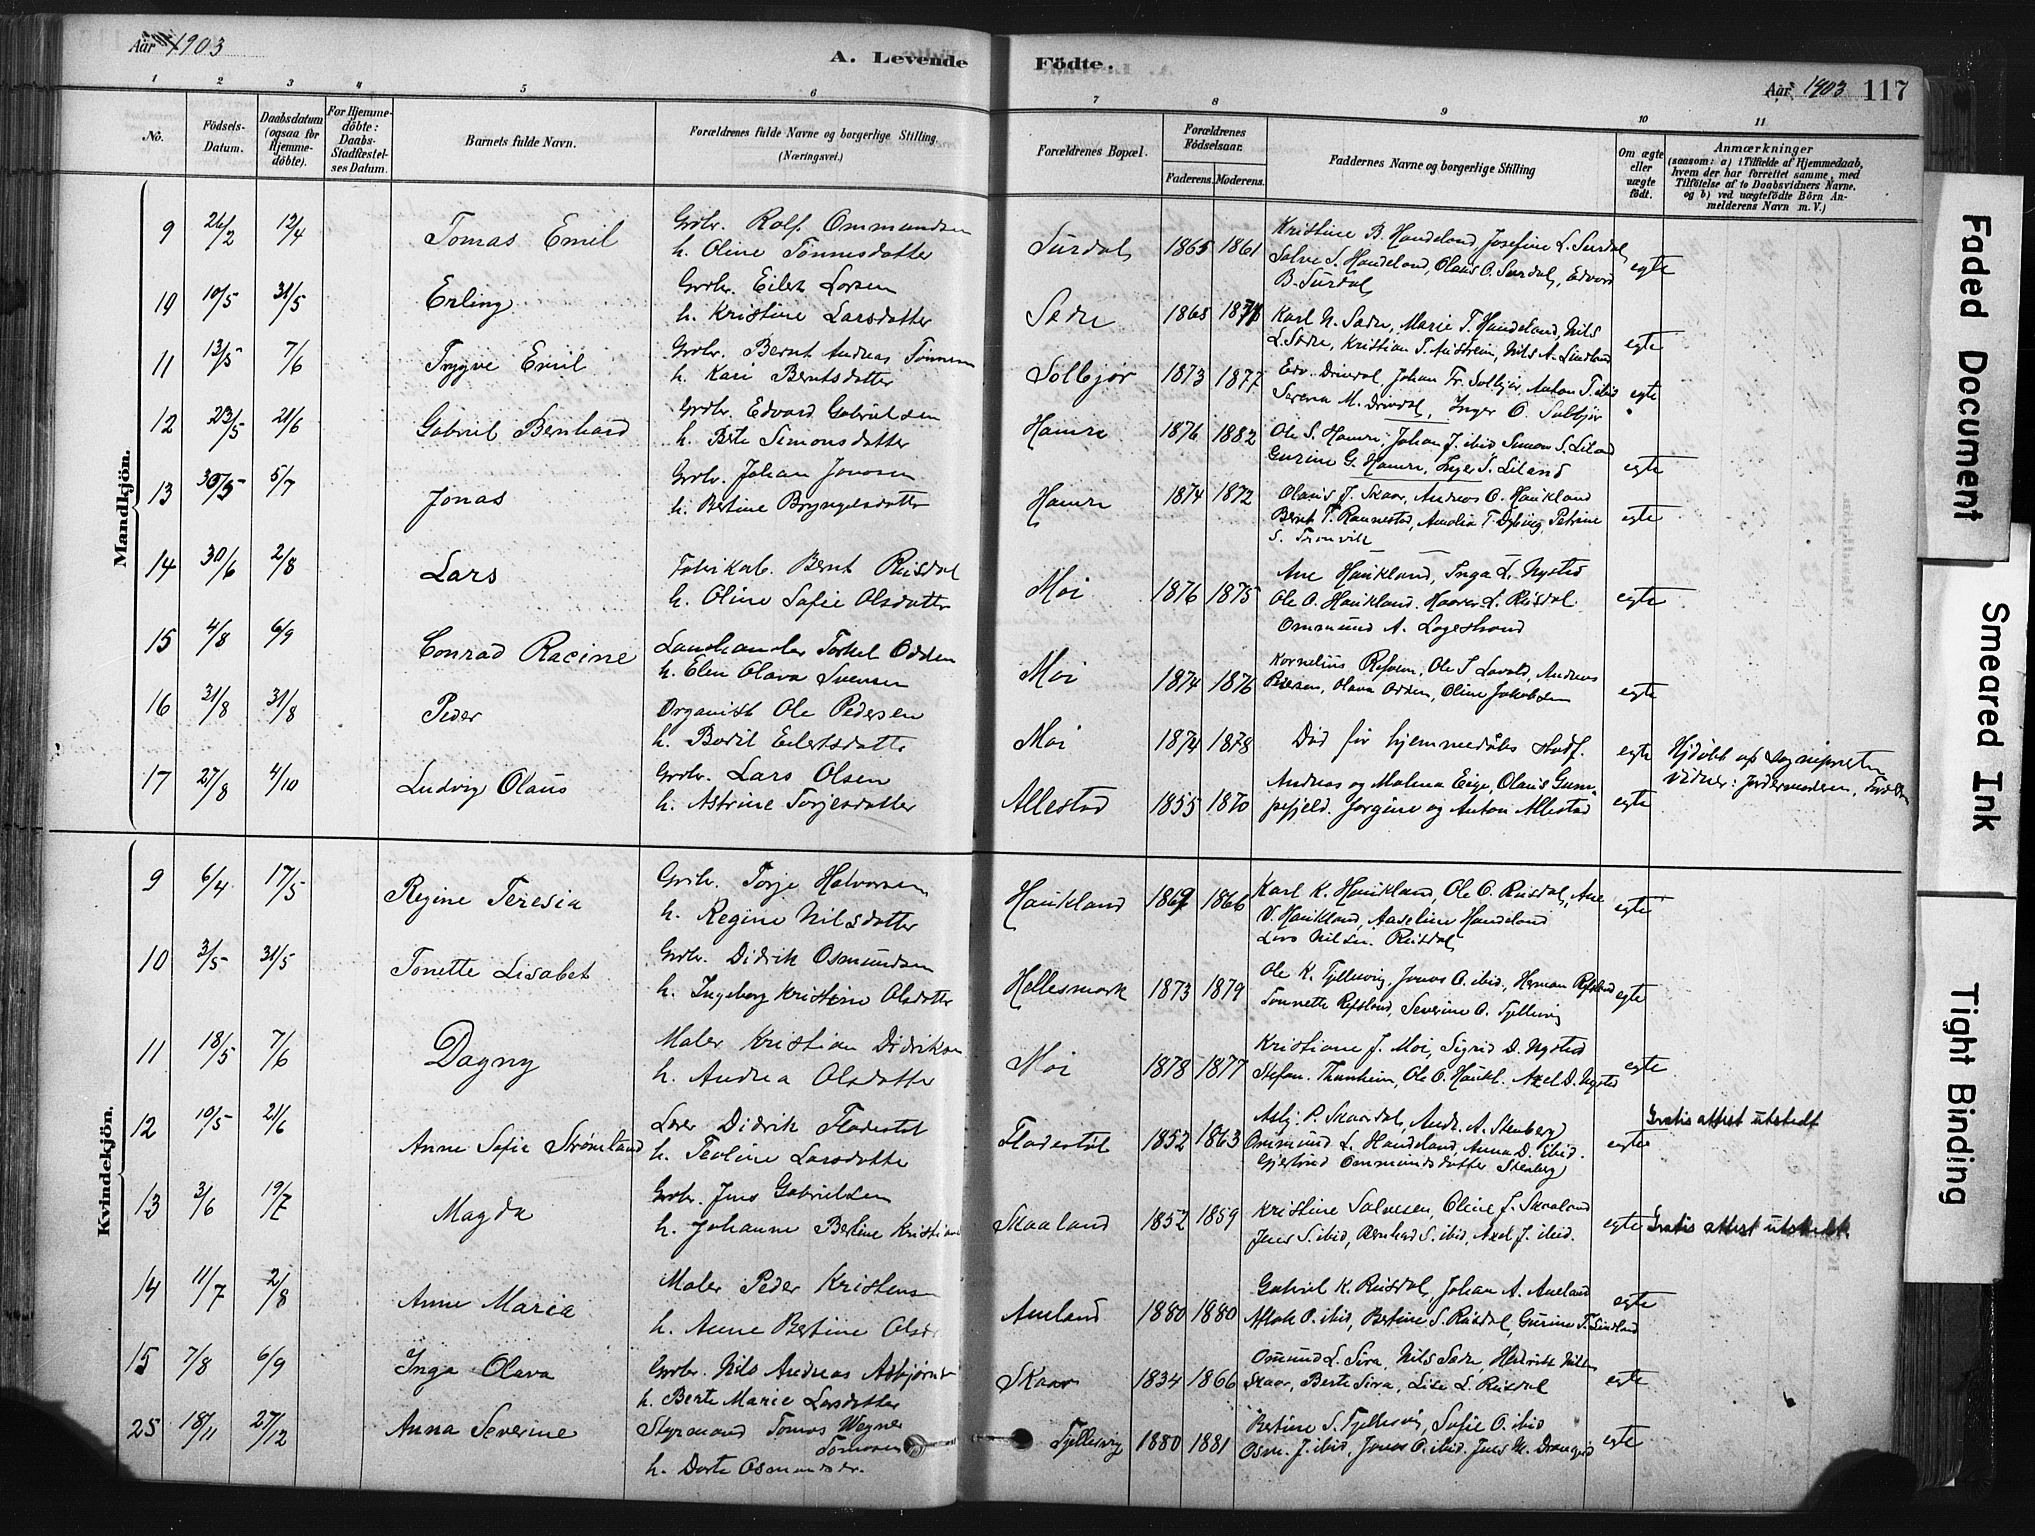 Aar 1903
A. Levende Födte.
Aar 1903 117
1 2 3 4 5 6 7 8 9 10 11
No.
Födsels-Datum.
Daabsdatum (ogsaa for Hjemme-döbte).
For Hjemme-döbte: Daabs-Stadfæstel-ses Datum.
Barnets fulde Navn.
Forældrenes fulde Navne og borgerlige Stilling. (Næringsvei.)
Forældrenes Bopæl.
Forældrenes Födselsaar.
Faderens. Moderens.
Faddernes Navne og borgerlige Stilling
Om ægte eller uægte födt.
Anmærkninger
(saasom: a) i Tilfælde af Hjemmedaab, hvem der har forrettet samme, med Tilföielse af to Daabsvidners Navne. og b) ved uægtefödte Börn An-melderens Navn m. V.)
Mandkjön.
9 26/2 12/4 Tomas Emil Grbr. Rolf Ommundsen
h. Oline Tönnesdatter
Surdal 1865 1861 Kristine B. Handeland, Josefine L. Surdal
Salve S. Handeland, Olaus O. Surdal, Edvard
B. Surdal egte
10 10/5 31/5 Erling Grbr. Eilert Larsen
h. Kristine Larsdatter
Sædre 1865 Karl N. Sædre, Marie T. Handeland, Nils
L. Sædre, Kristian T. Austrheim, Nils A. Lindland egte
11 13/5 7/6 Trygve Emil Grbr. Bernt Andreas Tönnesen
h. Kari Berntsdatter
Solbjør 1873 1877 Edv. Drivdal, Johan Fr. Solbjør, Anton T. ibid
Serena M. Drivdal, Inger O. Solbjør egte
12 23/5 21/6 Gabriel Bernhard Grbr. Edvard Gabrielsen
h. Berte Simonsdatter
Hamre 1876 1882 Ole S. Hamre, Johan J. ibid Simon S. Liland
Gurine G. Hamre, Inger S. Liland egte
13 30/5 5/7 Jonas Grbr. Johan Jonasen
h. Bertine Bryngelsdatter
Hamre 1874 1872 Olaus J. Skaar, Andreas O. Haukland
Bernt T. Rannestad, Amalia T. Dybing, Petrine
S. Tronvik egte
14 30/6 2/8 Lars Fabrikarb. Bernt Rusdal
h. Oline Sofie Olsdatter
Moi 1876 1875 Ane Haukland, Inga L. Nysted
Ole O. Haukland, L. Rusdal
Ommund A. Logestrand egte
15 4/8 6/9 Conrad Racine Landhandler Torkel Odden
h. Elen Olava Svensen
Moi 1874 1876 Kornelius Refsnes, Ole S Lavold, Andreas
Olava Odden, Oline Jakobsen egte
16 31/8 31/8 Peder Organist Ole Pedersen
h. Bodil Eilertsdatter
Moi 1874 1878 Död för hjemmedaabs stadf. egte Hjdöbt af sognepresten
Vidner: Jordemoderen,
17 27/8 4/10 Ludvig Olaus Grbr. Lars Olsen
h. Astrine Torjesdatter
Allestad 1855 1870 Andreas og Malena Eige, Olaus Gum-
pefjeld. Jorgine og Anton Allestad egte
Kvindekjön.
9 6/4 17/5 Regine Teresia Grbr. Torje Halvorsen
h. Regine Nilsdatter
Haukland 1866 Karl K. Haukland, Ole O. Rusdal, Ane
V. Haukland, Aaseline Handeland
Lars Nilsen Rusdal egte
10 3/5 31/5 Tonette Lisabet Grbr. Didrik Osmundsen
h. Ingeborg Kristine Olsdatter
Hellesmark 1873 1879 Ole K. Fjellesvig, Jonas O. ibid, Herman Refsland
Tonnette Refsland, Severine O. Fjellesvig egte
11 18/5 7/6 Dagny Maler Kristian Didriksen
h. Andrea Olsdatter
Moi 1878 1877 Kristiane J. Moi, Sigrid D. Nysted
Stefan Thunheim, Ole O. Haukl. Axel D. Nysted egte
12 10/5 21/6 Anne Sofie Strömland Lærer Didrik Fladestöl
h. Teoline Larsdatter
Fladestöl 1852 1863 Asbj. P. Skaardal, Andr. A. Stenberg
Ommund L. Handeland, Anna D. Ibid.
Gjertrud Ommundsdatter Stenberg egte Gratis attest utstedt
13 3/6 19/7 Magda Grbr. Jens Gabrielsen
h. Johanne Bertine
Skaaland 1852 1859 Kristine Salvesen, Oline J. Skaaland
Jens S. ibid, Bernhard S. ibid, Axel J. ibid. egte Gratis attest utstedt
14 11/7 2/8 Anne Maria Maler Peder Kristensen
h. Anne Bertine
Aueland 1880 1880 Gabriel K. Rusdal, Johan A. Aueland
Aslak O. ibid, Bertine S. Rusdal, Gurine T. Lindland egte
15 7/8 6/9 Inga Olava Grbr. Nils Andreas
h. Berte Marie Larsdatter
Skaar 1834 1866 Omund L. Sira, Nils Sædre, Hendrik Nilsen
Skaar, Berte Sira, Lise L. Rusdal egte
25 18/11 27/12 Anna Severine Styrmand Tomas Wegner
Tomasen
h. Dorte Osmundsdr.
Fjellesvig 1880 1881 Betine S. Fjellesvig, Sofie O. ibid
Osm. J. ibid, Jonas O. ibid. Jens M. Drangeid egte
Faded Document
Smeared Ink
Tight Binding